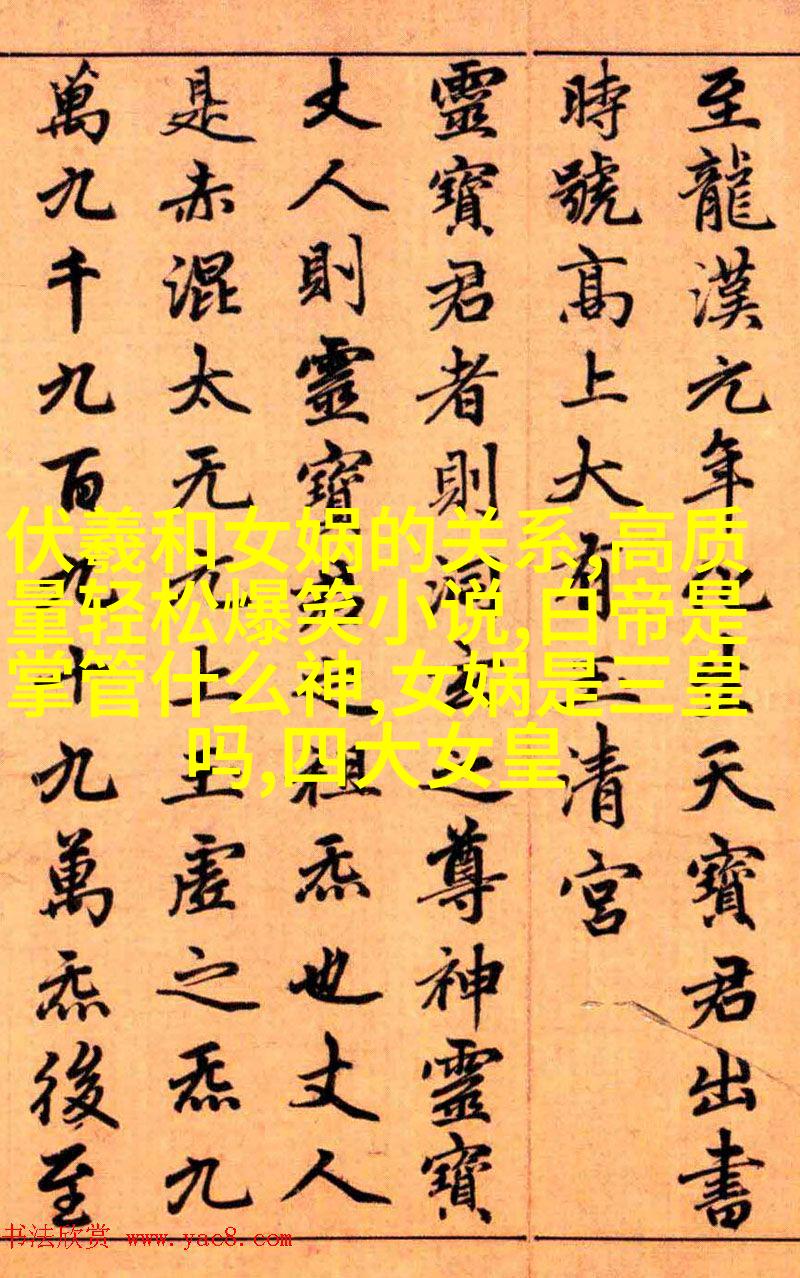 至龍漢元年化生天寶君出書
時號高上大有玉清宮
靈寶君者則洞玄之尊神靈寶
丈人則靈寶君之祖炁也丈人
是赤混太无元上玉虛之炁九
萬九千九百九十九萬炁後至
伏羲和女娲的关系,高质
量轻松爆笑小说,白帝是
掌管什么神,女娲是三皇
吗,四大女皇
书法欣赏 www.yac8.com